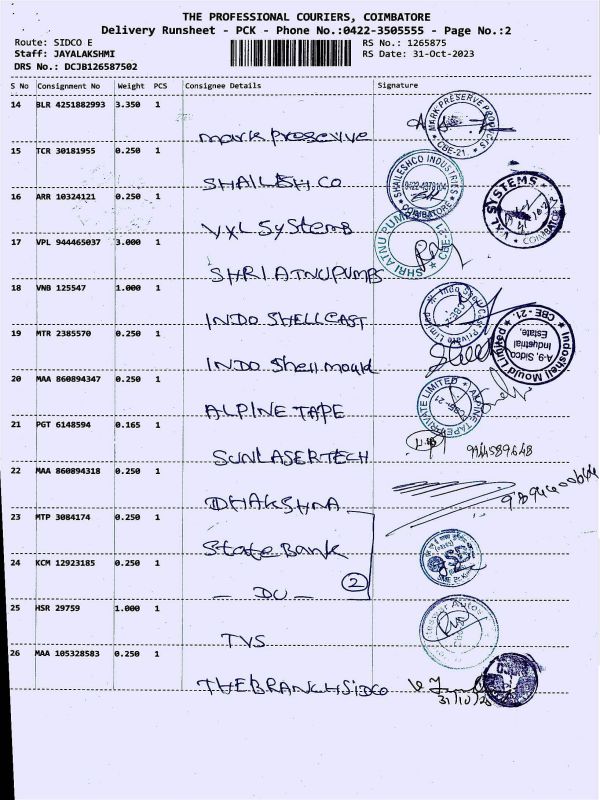 THE PROFESSIONAL COURIERS, COIMBATORE
Delivery Runsheet - PCK - Phone No.:0422-3505555 - Page No.:2
Route: SIDCO E
RS No.: 1265875
Staff: JAYALAKSHMI
RS Date: 31-Oct-2023
DRS No.: DCJB126587502
S No Consignment No Weight PCS Consignee Details Signature
14 BLR 4251882993 3.350 1
mark preservive
MARK PRESERVE PRODUCTS
CBE-21
15 TCR 30181955 0.250 1
SHAILESH CO
SHAILESHCO INDUSTRIES
COIMBATORE
16 ARR 10324121 0.250 1
VXL SYStems
VXL SYSTEMS
COIMBATORE
17 VPL 944465037 3.000 1
SHRI ATNUPUMPS
SHRI ATNU PUMPS
CBE
18 VNB 125547 1.000 1
INDO SHELLCAST
Indo Shell Cast Private Limited
19 MTR 2385570 0.250 1
INDO Shell mould
Indoshell Mould Limited
CBE - 21.
A-9, Sidco
Industrial
Estate,
20 MAA 860894347 0.250 1
ALPINE TAPE
ALPINE TAPE PRIVATE LIMITED
21 PGT 6148594 0.165 1
SUNLASERTECH
9944589648
22 MAA 860894318 0.250 1
DHAKSHNA
23 MTP 3084174 0.250 1
State Bank
24 KCM 12923185 0.250 1
- DU -
2
25 HSR 29759 1.000 1
TVS
26 MAA 105328583 0.250 1
THEBRANCHSIDCO
31/10/23